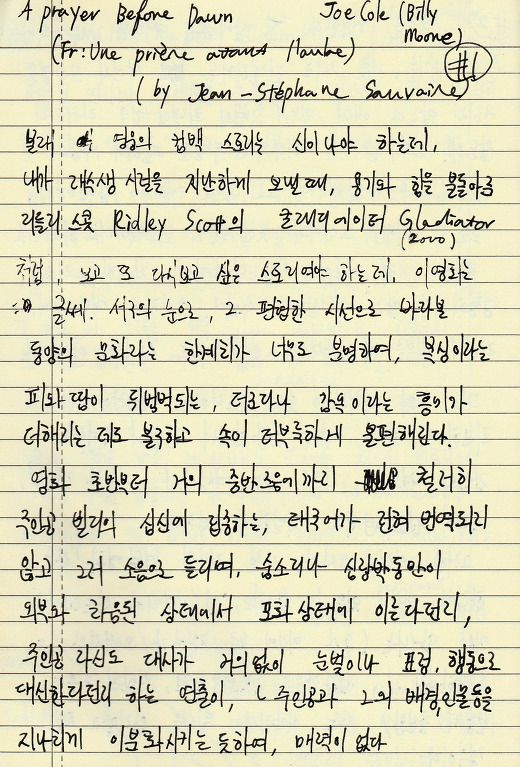 A prayer Before Dawn Joe Cole (Billy Moore)
(Fr: Une prière avant l'aube) #1
(by Jean-Stéphane Sauvaire)
본래 영웅의 컴백 스토리는 신이나야 하는데,
내가 대학생 시절을 지난하게 보낼때, 용기와 힘을 북돋아준
리들리 스콧 Ridley Scott의 글래디에이터 Gladiator
(2000)
처럼, 보고 또 다시보고 싶은 스토리여야 하는데, 이영화는
글쎄. 서구의 눈으로, 그 편협한 시선으로 바라본
동양의 문화라는 한계치가 너무도 분명하여, 복싱이라는
피와 땀이 뒤범벅되는, 더군다나 감옥이라는 흥미가
더해지는 데도 불구하고 속이 더부룩하게 불편해진다.
영화 초반부터 거의 중반즈음에까지 철저히
주인공 빌리의 심신에 집중하는, 태국어가 전혀 번역되지
않고 그저 소음으로 들리며, 숨소리나 심장박동만이
외부와 차음된 상태에서 포화상태에 이른다던지,
주인공 자신도 대사가 거의없이 눈빛이나 표정, 행동으로
대신한다던지 하는 연출이, 주인공과 그의 배경, 인물들을
지나치게 이분화시키는 듯하여, 매력이 없다